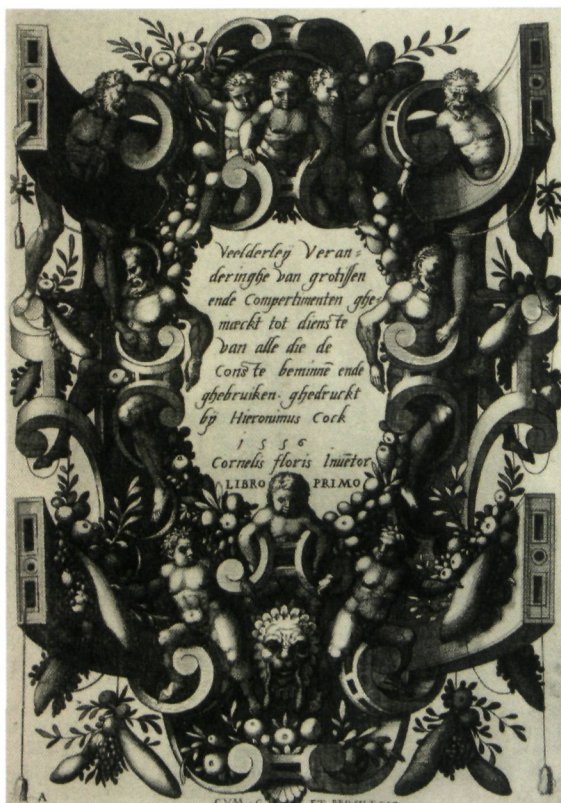 Veelderleij Veran=
deringhe van grotissen
ende Compertimenten ghe=
maeckt tot dienste
van alle die de
Conste beminnē ende
ghebruiken. ghedruckt
bij Hieronimus Cock
1556
Cornelis floris Invētor
LIBRO PRIMO
A
CVM ET